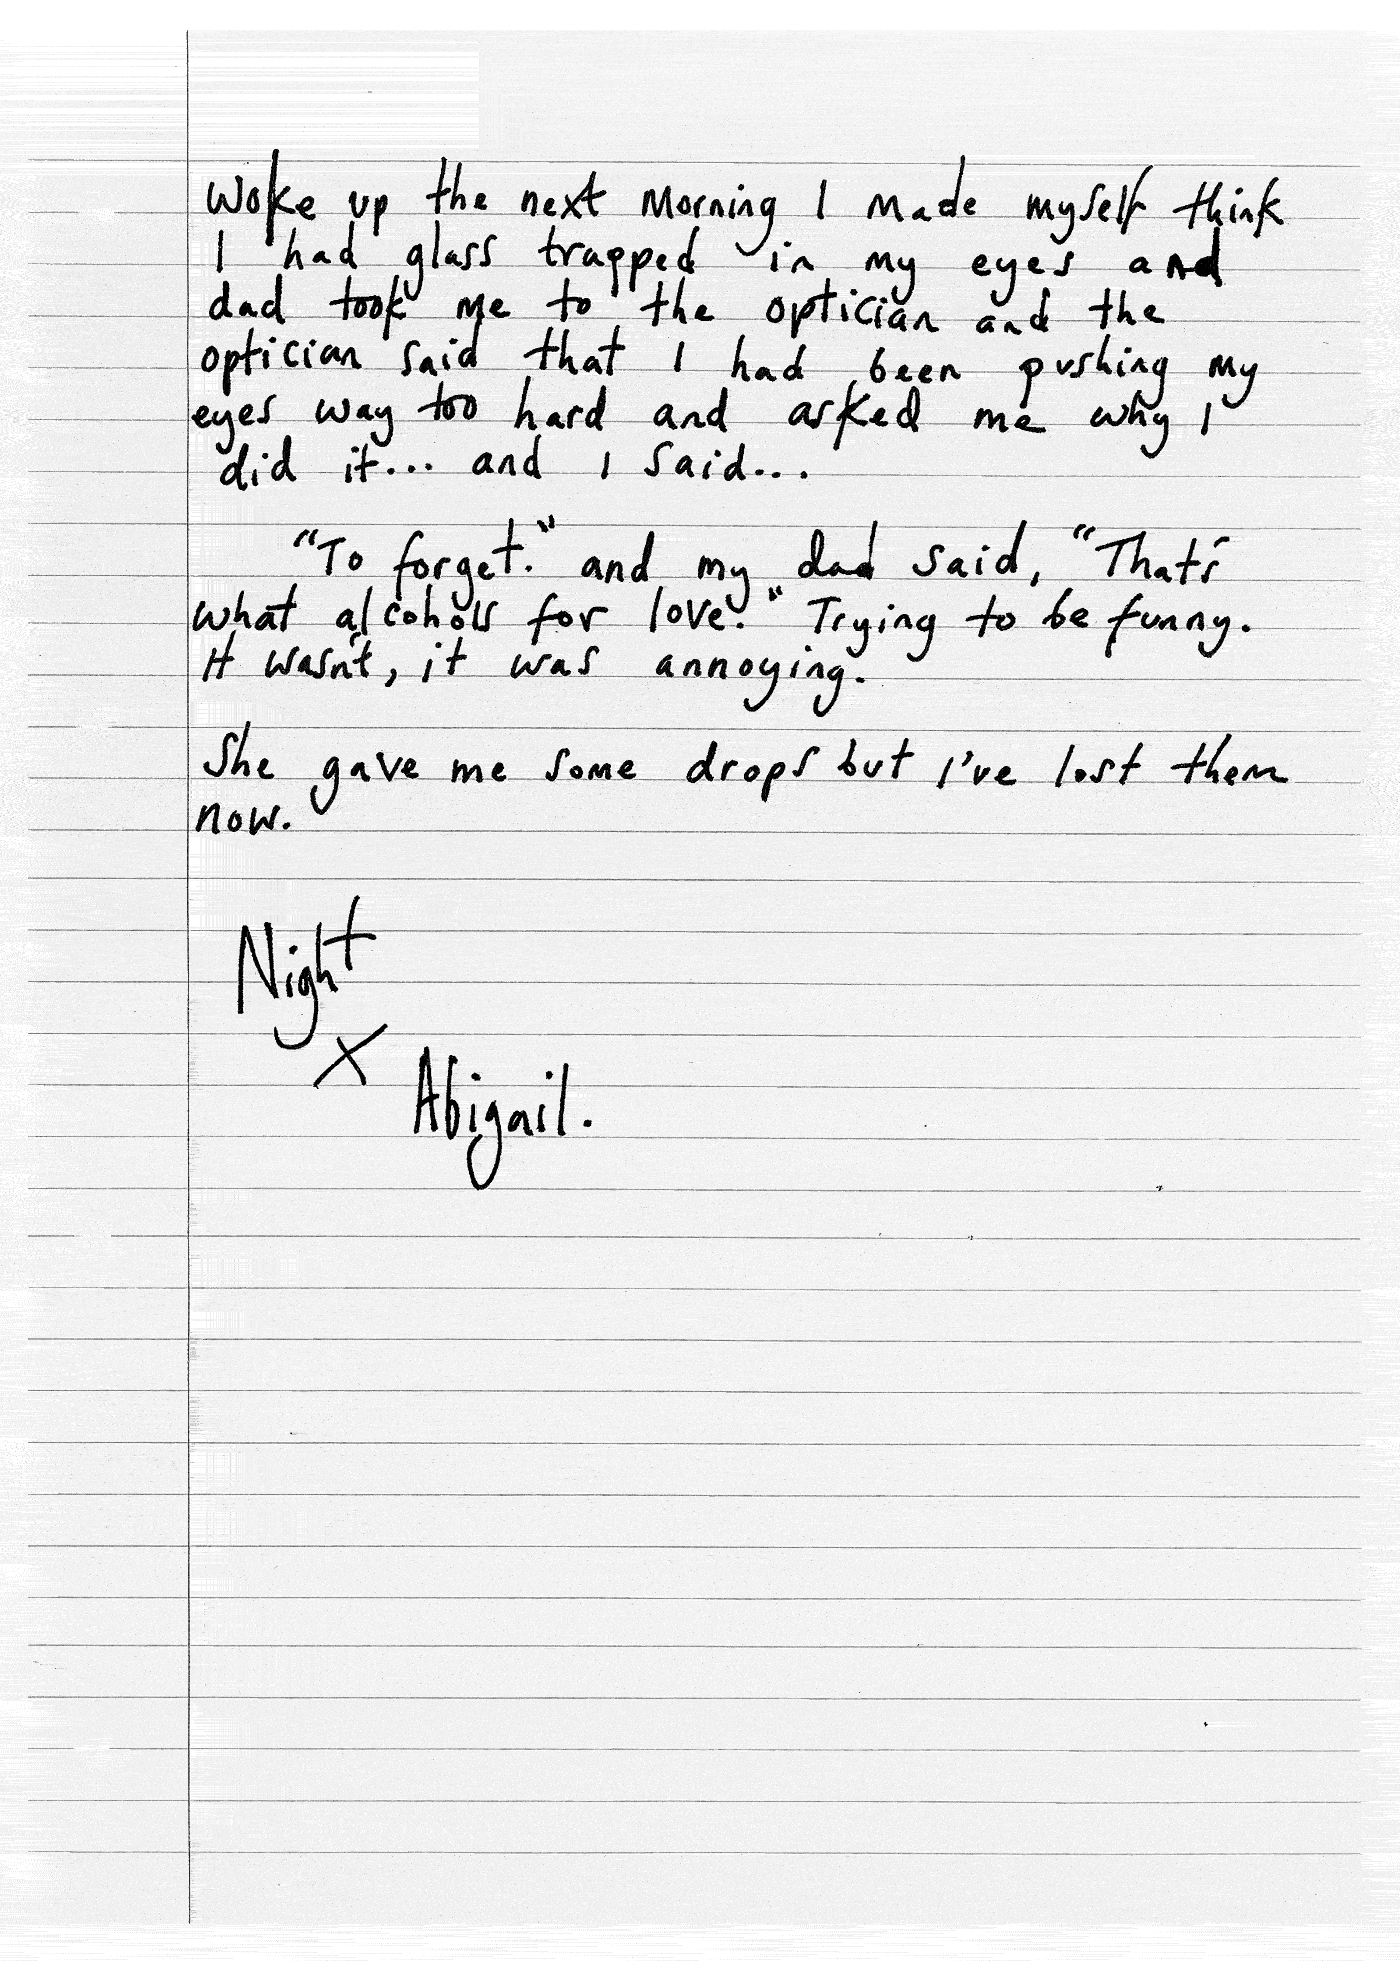 Woke up the next Morning I made myself think
I had glass trapped in my eyes and
dad took me to the optician and the
optician said that I had been pushing my
eyes way too hard and asked me why I
did it... and I said...
"To forget." and my dad said, "That's
what alcohols for love." Trying to be funny.
It wasn't, it was annoying.
She gave me some drops but I've lost them
now.
Night
x
Abigail.